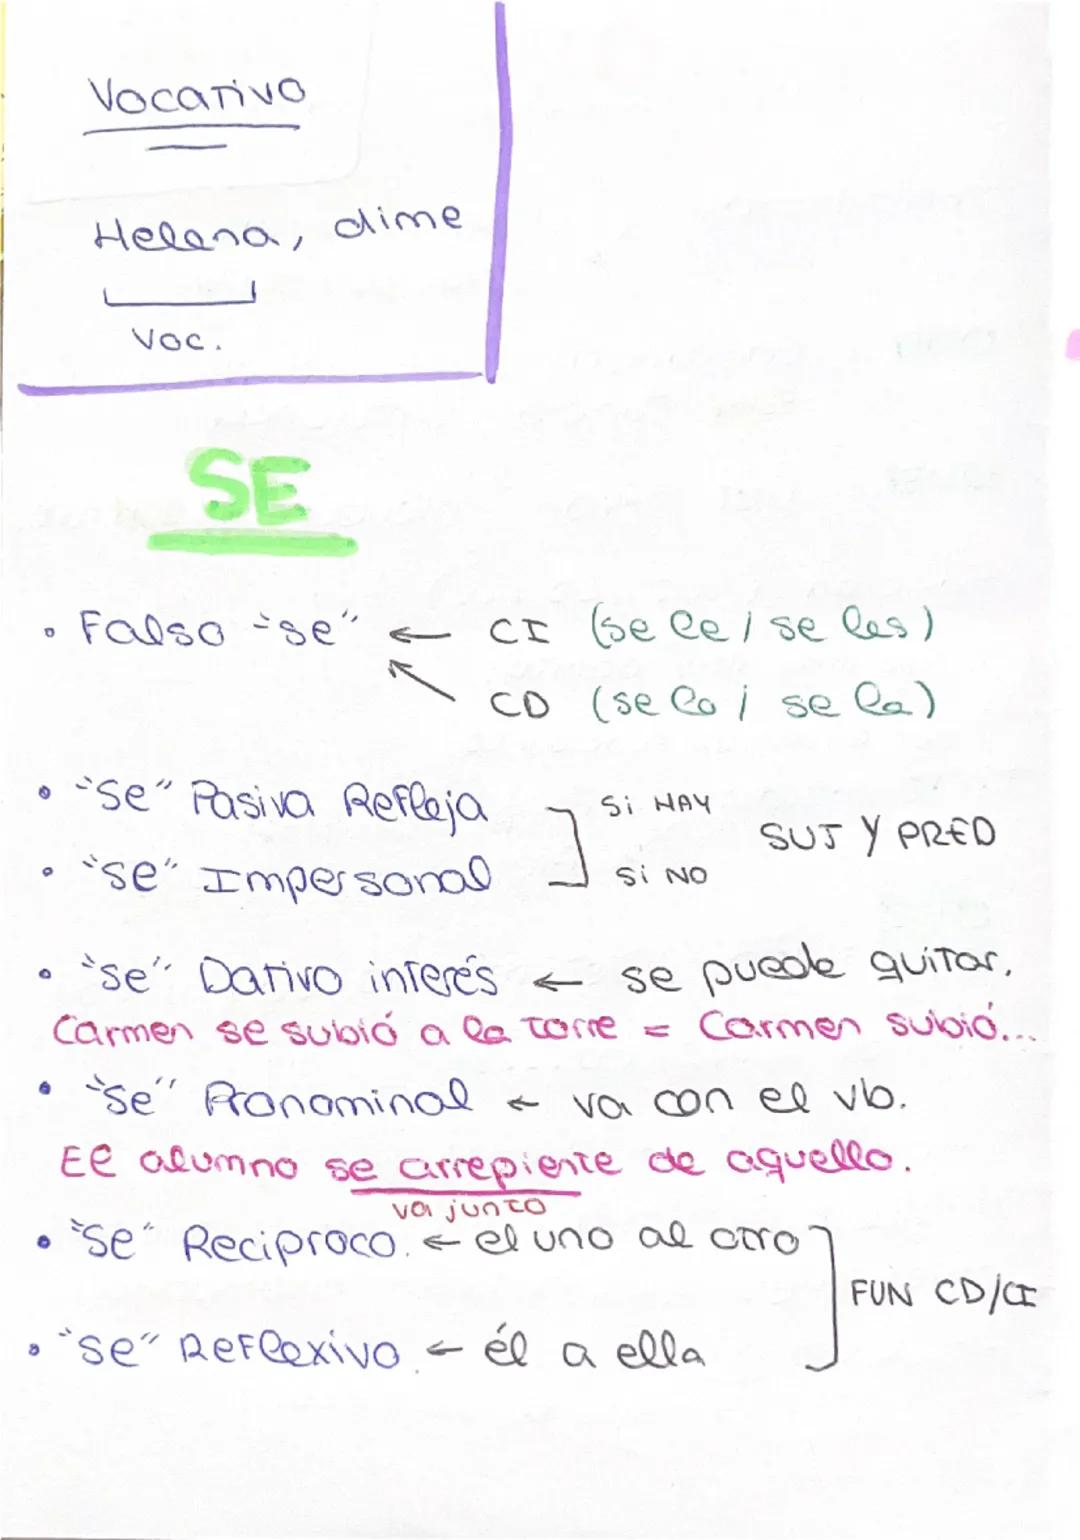 Vocativo
Helena, dime
Voc.
SE
• Falso "se" ← CI (se le / se les)
↖ CD (se lo / se la)
• "Se" Pasiva Refleja ] Si HAY SUJ Y PRED
• "se" Impersonal ] Si NO
• "se" Dativo interés ← se puede quitar.
Carmen se subió a la torre = Carmen subió...
• "Se" Pronominal ← va con el vb.
El alumno se arrepiente de aquello.
va junto
• "Se" Reciproco. ← el uno al otro ] FUN CD/CI
• "se" Reflexivo ← él a ella